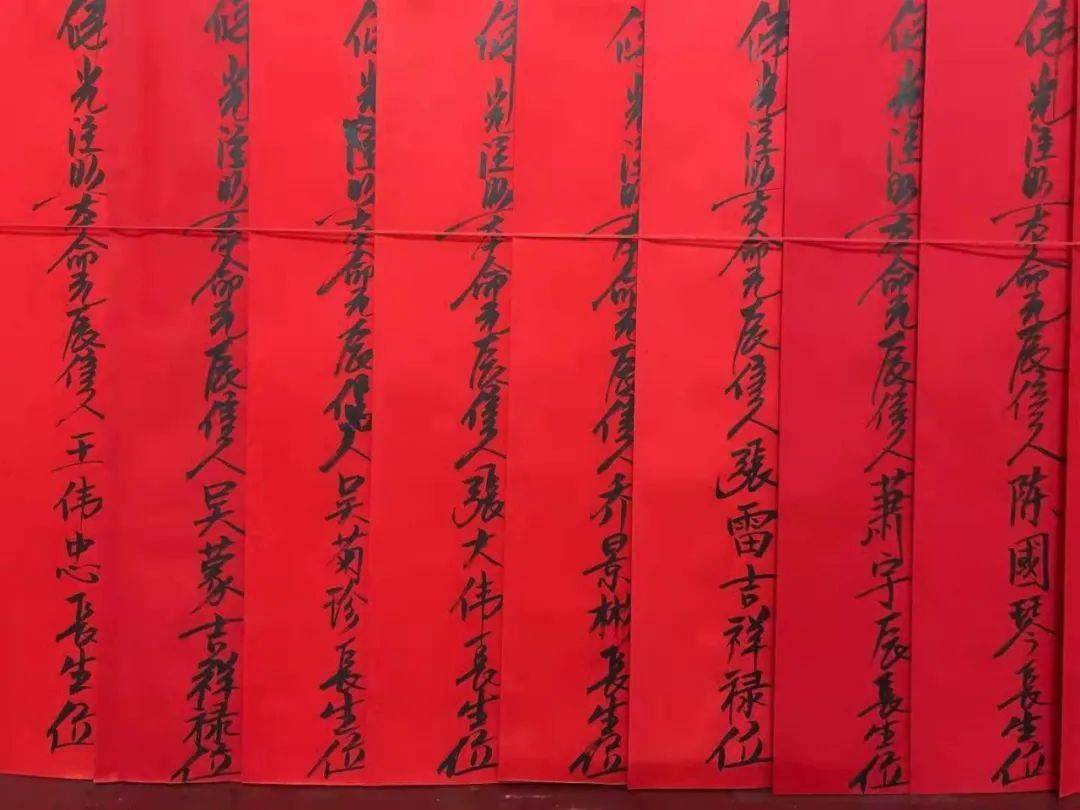 佛光注照本命元辰信人陈國琴長生位
佛光注照本命元辰信人蕭宇辰長生位
佛光注照本命元辰信人張雷吉祥禄位
佛光注照本命元辰信人乔景彬長生位
佛光注照本命元辰信人張大伟長生位
佛光注照本命元辰信人吴菊珍長生位
佛光注照本命元辰信人吴蒙吉祥禄位
佛光注照本命元辰信人王伟忠長生位